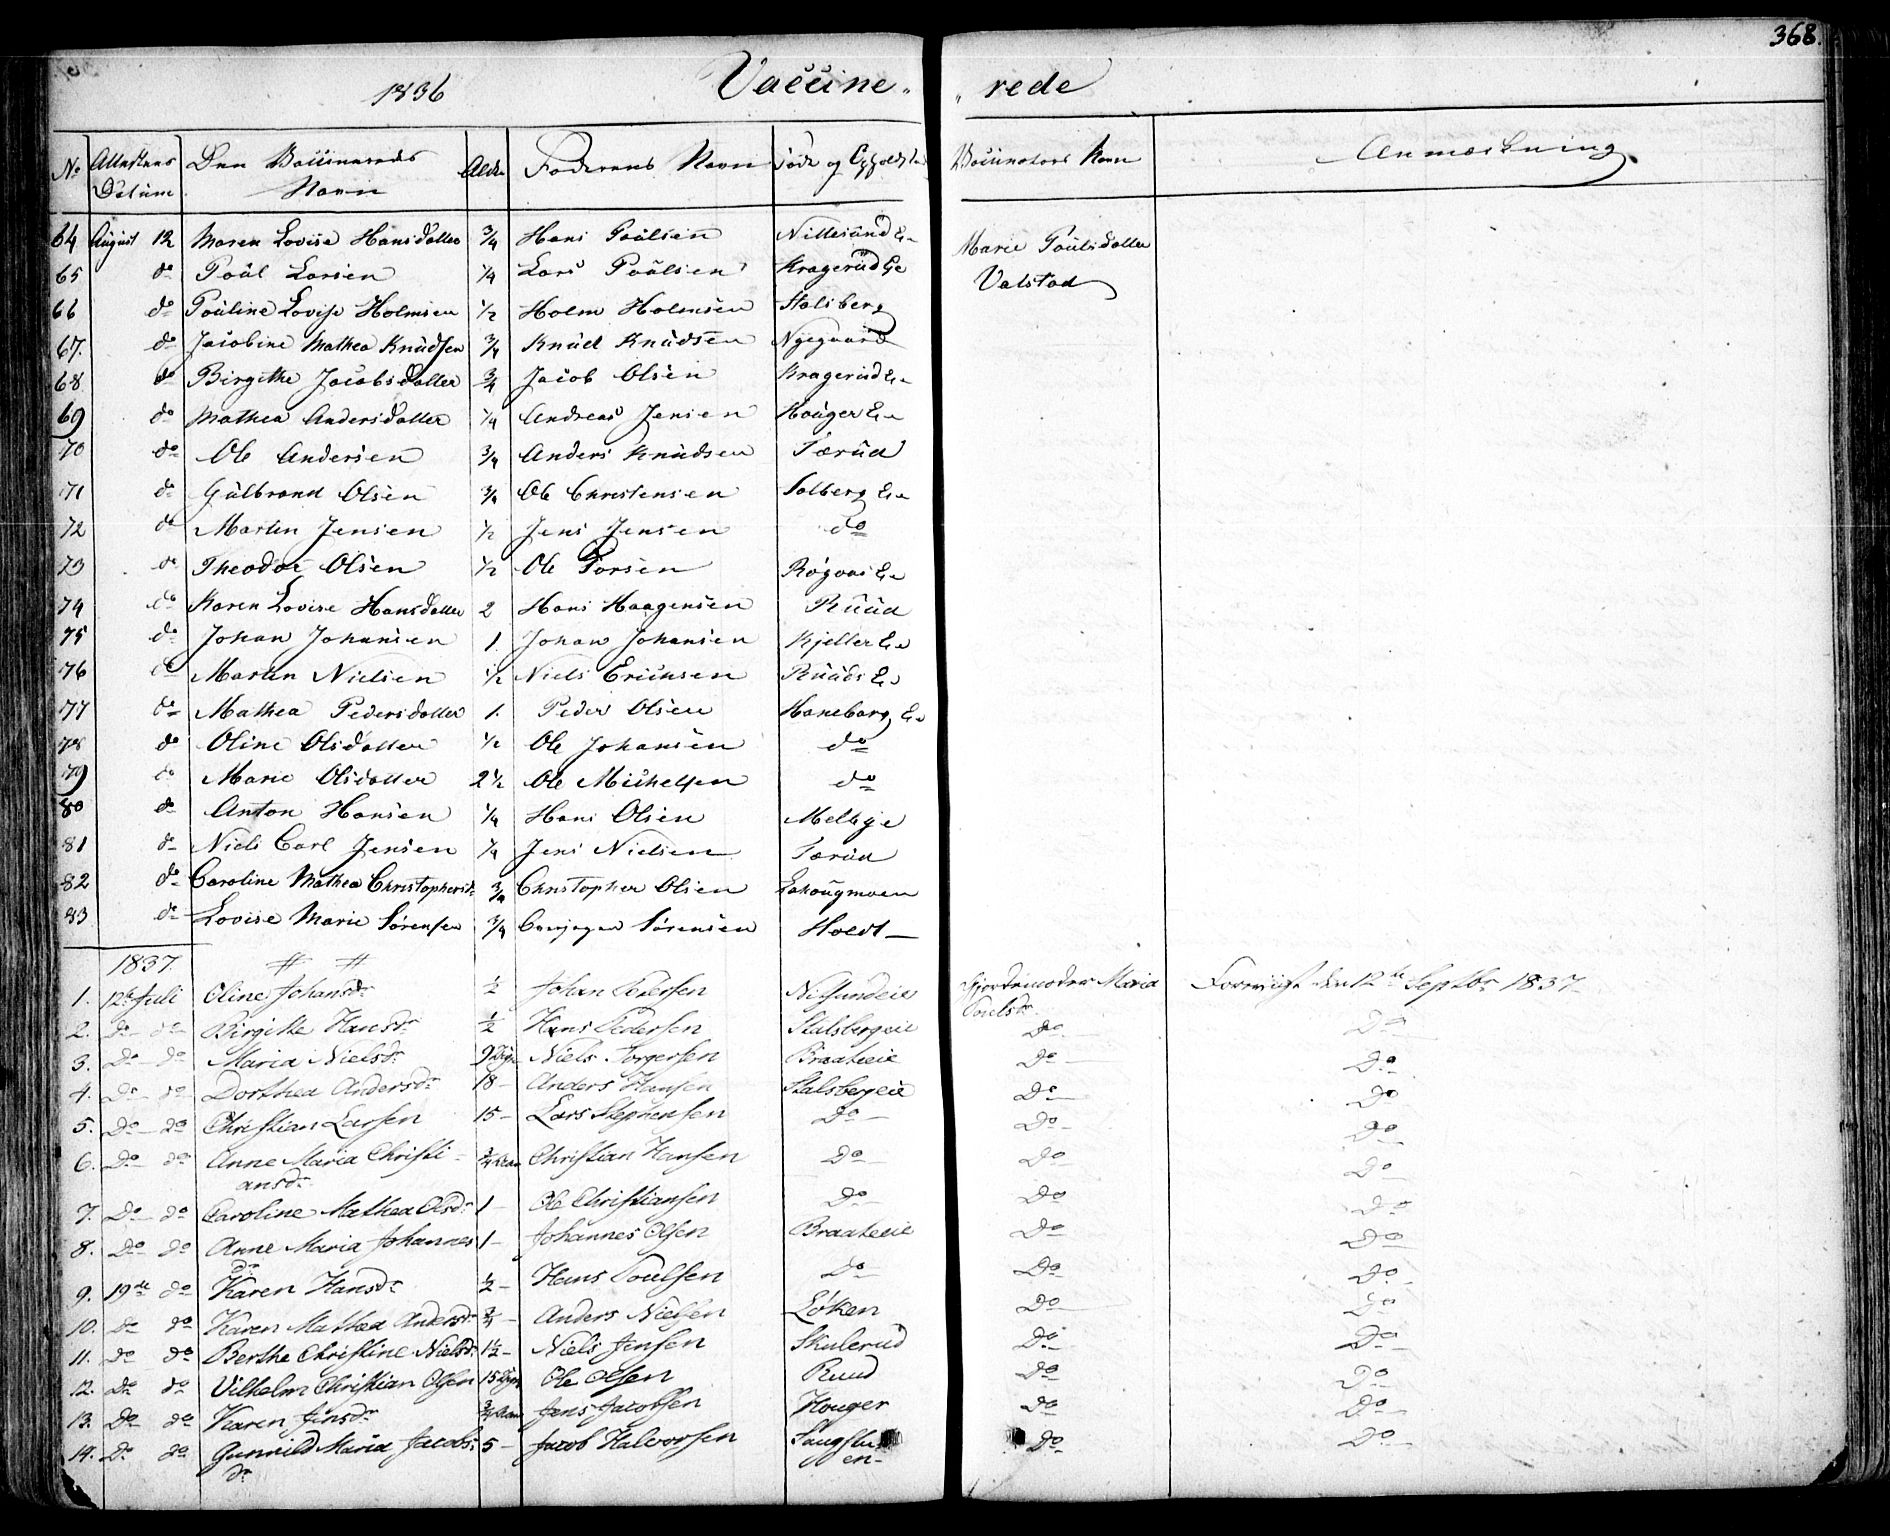 368.
1836 Vaccine- -rede
No Attestens Datum Den Vaccineredes Navn Alder Faderens Navn Føde og Opholdsted Vaccinators Navn Anmærkning
64 August 12 Maren Lovise Hansdatter 3/4 Hans Paulsen Nittesund Eie Marie Poulsdatter
65 do Poul Larsen 1/4 Lars Poulsen Kragerud Eie Valstad
66 do Pouline Lovise Holmsen 1/2 Holm Holmsen Stalsberg
67. do Jacobine Mathea Knudsen 3/4 Knud Knudsen Nyegaard
68 do Birgithe Jacobsdatter 3/4 Jacob Olsen Kragerud Eie
69 do Mathea Andersdatter 1/4 Andreas Jensen Houger Eie
70 do Ole Andersen 3/4 Anders Knudsen Tærud
71 do Gulbrand Olsen 3/4 Ole Christensen Solberg Eie
72 do Martin Jensen 1/2 Jens Jensen do
73 do Theodor Olsen 1/2 Ole Torsen Eie
74 do Karen Lovise Hansdatter 2 Hans Haagensen Ruud
75 do Johan Johansen 1. Johan Johansen Kjeller Eie
76 do Martin Nielsen 1/2 Niels Ericksen Ruuds Eie
77 do Mathea Pedersdatter 1. Peder Olsen Haneborg Eie
78 do Oline Olsdatter 1/2 Ole Johansen do
79 do Marie Olsdatter 2 1/2 Ole Michelsen do
80 do Anton Hansen 1/4 Hans Olsen Melbye
81 do Niels Carl Jensen 1/4 Jens Nielsen Tærud
82 do Caroline Mathea Christophersd. 3/4 Christopher Olsen Lahougmoen
83 do Lovise Marie Sørensen 3/4 Sørensen Holdt
1837.
1. 12te Juli Oline Johansdr 1/2 Johan Pedersen Nitsundeie Gjordemoder Maria Forevist den 12te Septbr 1837
Poulsdr
2. Do do Birgitte Hansdr 1/2 Hans Pedersen Stalsbergeie Do Do
3. Do do Maria Nielsdr 9 Dage Niels Torgersen Braateeie Do Do
4. Do do Dorthea Andersdr 18 - Anders Hansen Stalsbergeie Do Do
5. Do do Christian Larsen 15 - Lars Stephensen Do Do Do
6. Do do Anne Maria Christi- 3/4 Aar Christian Hansen Do Do Do
ansdr
7. Do do Caroline Mathea Olsdr 1 - Ole Christiansen Do Do Do
8. Do do Anne Maria Johannes 1 - Johannes Olsen Braateeie Do Do
dr
9. 19de do Karen Hansdr 1/2 - Hans Poulsen Do Do Do
10. Do do Karen Mathea Andersdr 3/4 - Anders Nielsen Løken Do Do
11. Do do Berthe Christine Nielsdr 1 1/2 - Niels Jensen Skulerud Do Do
12. Do do Vilhelm Christian Olsen 15 Dage Ole Olsen Ruud Do Do
13. Do do Karen Jensdr 3/4 Aar Jens Jacobsen Houger Do Do
14. Do do Gunnild Maria Jacobs 5 - Jacob Halvorsen Do Do
dr en-